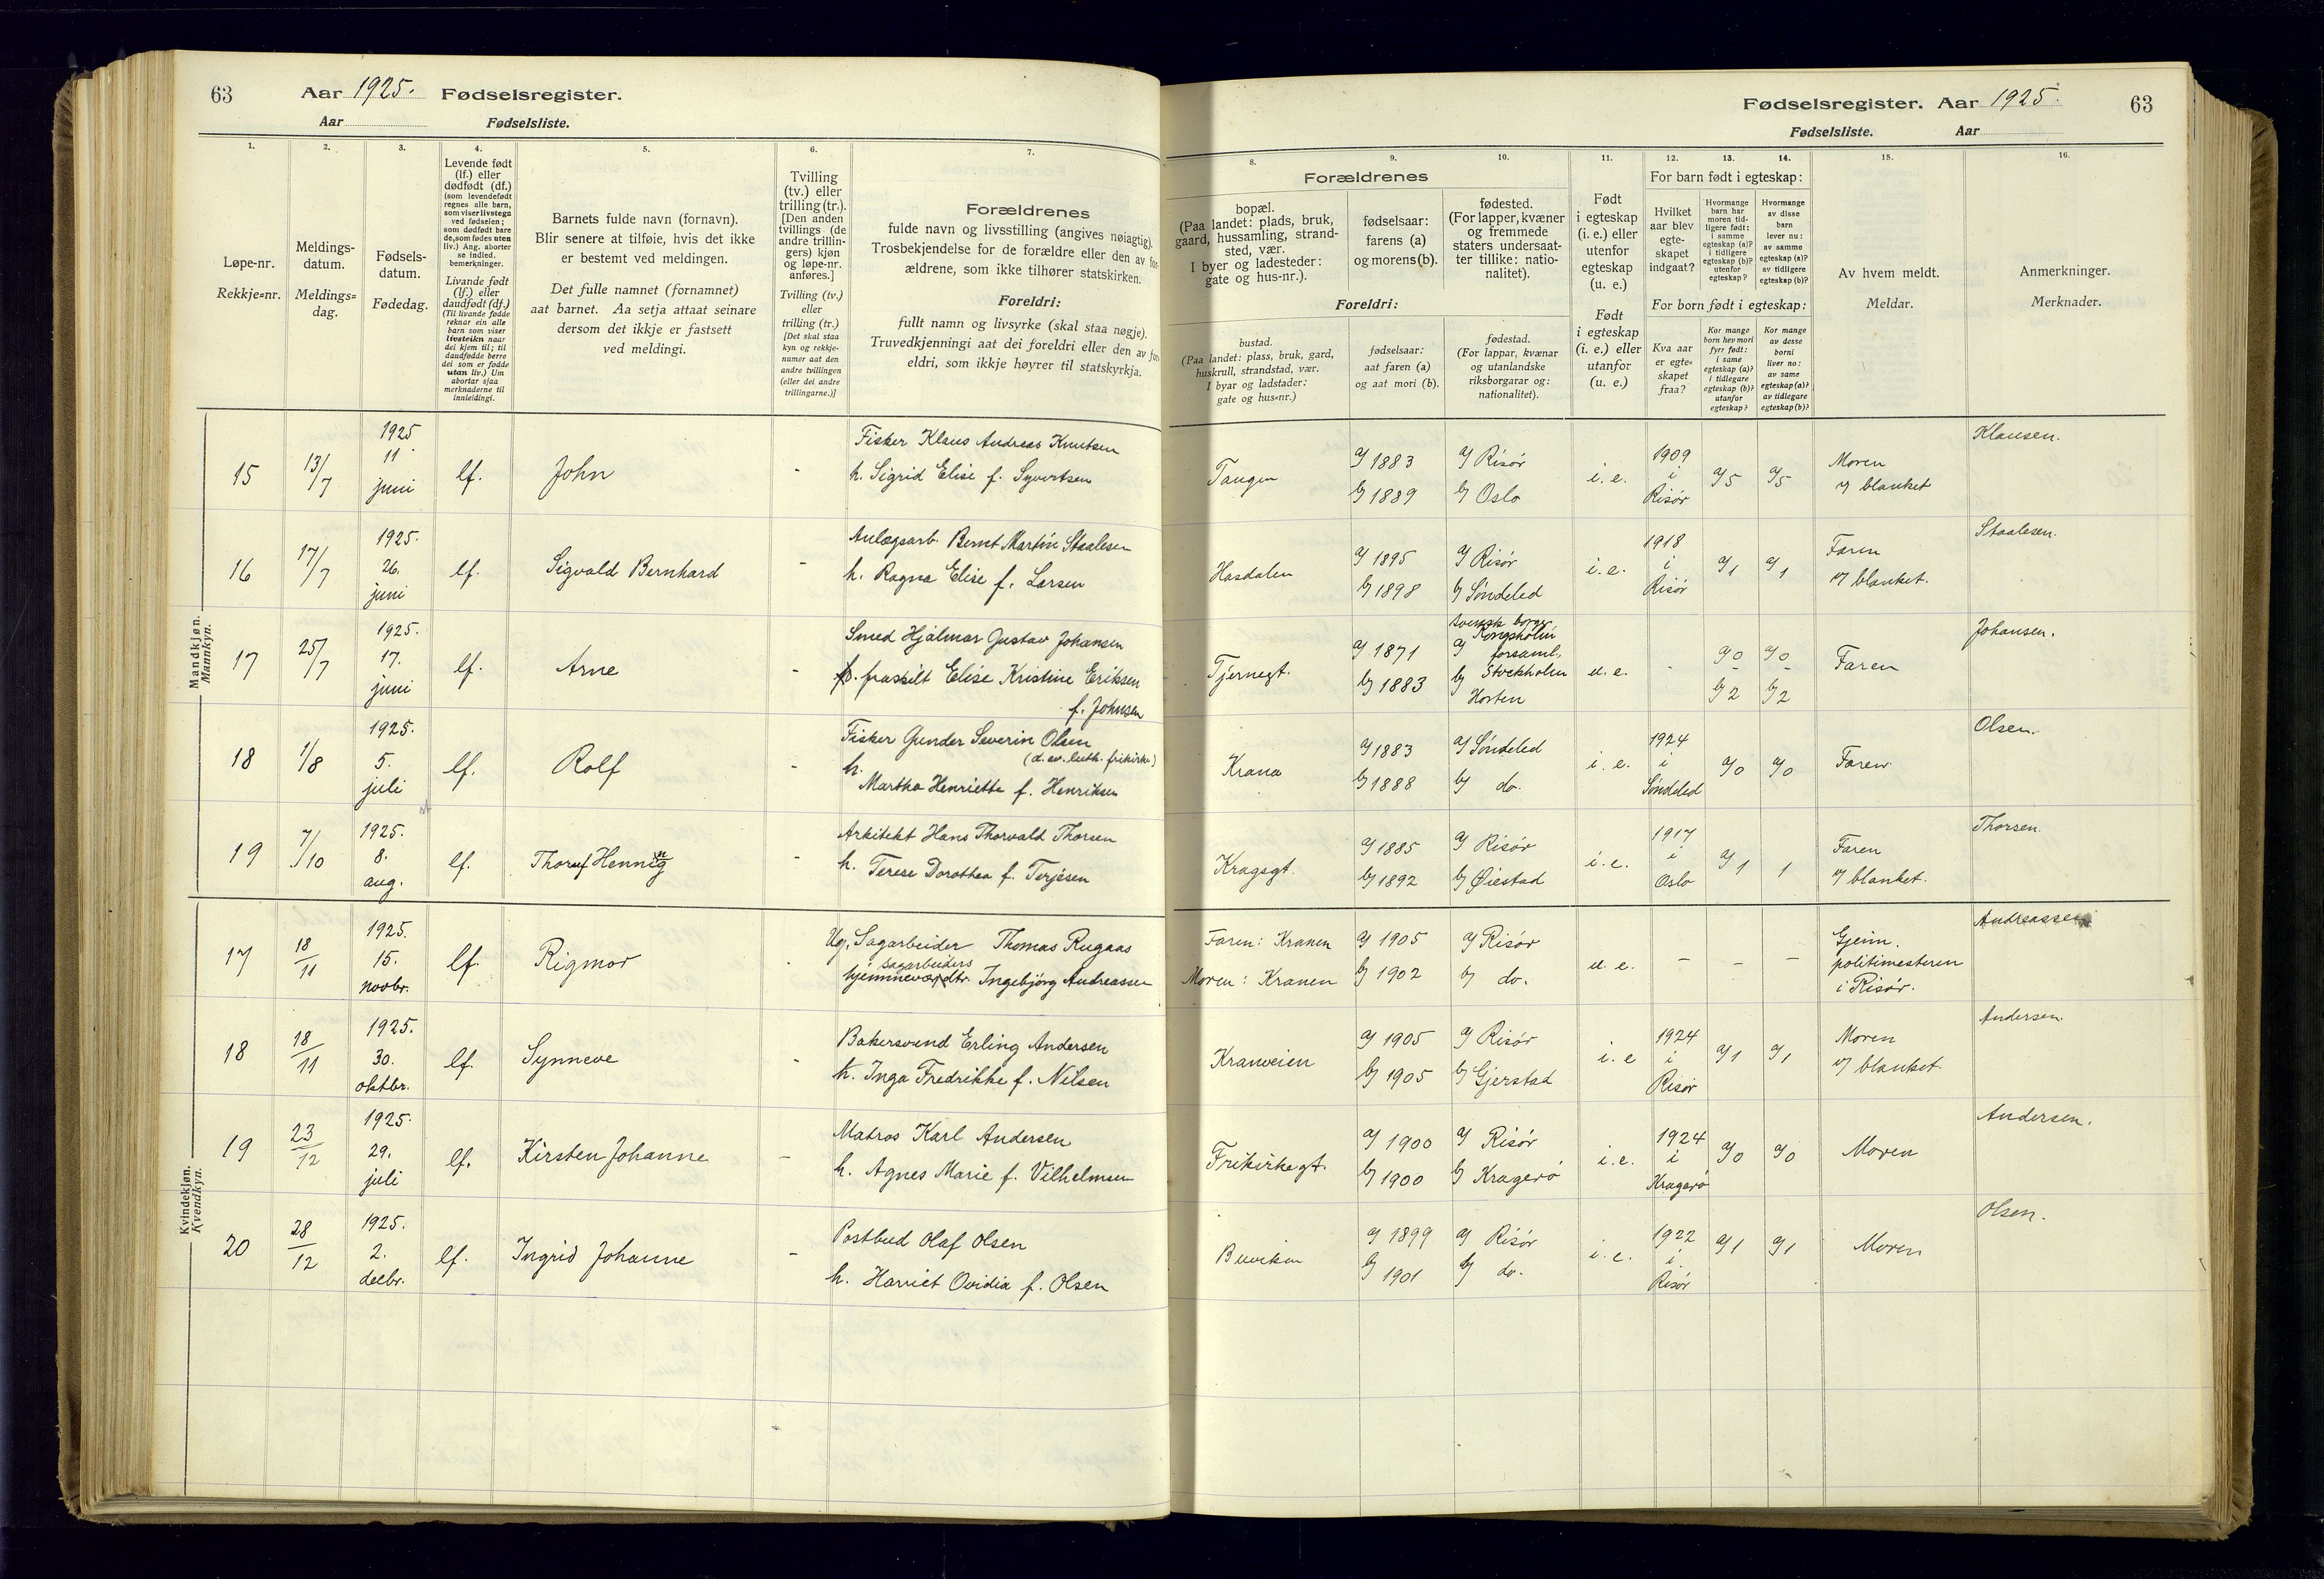 63 Aar 1925. Fødselsregister.
Aar Fødselsliste.
1. 2. 3. 4. 5. 6. 7.
Løpe-nr.
Rekkje-nr.
Meldings-
datum.
Meldings-
dag.
Fødsels-
datum.
Fødedag.
Levende født
(lf.) eller
dødfødt (df.)
(som levendefødt
regnes alle barn,
som viser livstegn
ved fødselen;
som dødfødt bare
de, som fødes uten
liv.) Ang. aborter
se indled.
bemerkninger.
Livande født
(lf.) eller
daudfødt (df.)
(Til livande fødde
reknar ein alle
barn som viser
livsteikn naar
dei kjem til; til
daudfødde berre
dei som er fødde
utan liv.) Um
abortar sjaa
merknaderne til
innleidingi.
Barnets fulde navn (fornavn).
Blir senere at tilføie, hvis det ikke
er bestemt ved meldingen.
Det fulle namnet (fornamnet)
aat barnet. Aa setja attaat seinare
dersom det ikkje er fastsett
ved meldingi.
Tvilling
(tv.) eller
trilling (tr.).
[Den anden
tvillings (de
andre trillin-
gers) kjøn
og løpe-nr.
anføres.]
Tvilling (tv.)
eller
trilling (tr.)
[Det skal staa
kyn og rekkje-
numer aat den
andre tvillingen
(eller dei andre
trillingarne.)]
Forældrenes
fulde navn og livsstilling (angives nøiagtig).
Trosbekjendelse for de forældre eller den av for-
ældrene, som ikke tilhører statskirken.
Foreldri:
fullt namn og livsyrke (skal staa nøgje).
Truvedkjenningi aat dei foreldri eller den av for-
eldri, som ikkje høyrer til statskyrkja.
Mandkjøn.
Mannkyn.
15 13/7 1925 11 juni lf. John - Fisker Klaus Andreas Knutsen
h. Sigrid Elise f. Syvertsen
16 17/7 1925. 26. juni lf. Sigvald Bernhard - Anlægsarb. Bernt Martin Staalesen
h. Ragna Elise f. Larsen
17 25/7 1925. 17. juni lf. Arne - Smed Hjalmar Gustav Johansen
fraskilt Elise Kristine Eriksen
f. Johnsen
18 1/8 1925. 5. juli lf. Rolf - Fisker Gunder Severin Olsen
(d. ev. luth. frikirke)
h.
Martha Henriette f. Henriksen
19 7/10 1925. 8. aug. lf. Henning - Arkitekt Hans Thorvald Thorsen
h. Terese Dorothea f. Terjesen
Kvindekjøn.
Kvendkyn.
17 18/11 1925. 15. novbr. lf. Rigmor Ug. Sagarbeider Thomas Rugaas
sagarbeiders
hjemmev. dtr. Ingebjørg Andreassen
18 18/11 1925. 30. oktbr. lf. Synneve - Bakersvend Erling Andersen
h. Inga Fredrikke f. Nilsen
19 23/12 1925. 29. juli lf. Kirsten Johanne - Matros Karl Andersen
h. Agnes Marie f. Vilhelmsen
20 28/12 1925. 2. decbr. lf. Ingrid Johanne - Postbud Olaf Olsen
h. Harriet Ovidia f. Olsen
Fødselsregister. Aar 1925. 63
Fødselsliste. Aar
8. 9. 10. 11. 12. 13. 14. 15. 16.
Forældrenes
bopæl.
(Paa landet: plads, bruk,
gaard, hussamling, strand-
sted, vær.
I byer og ladesteder:
gate og hus-nr.).
fødselsaar:
farens (a)
og morens (b).
fødested.
(For lapper, kvæner
og fremmede
staters undersaat-
ter tillike: natio-
nalitet).
Foreldri:
bustad.
(Paa landet: plass, bruk, gard,
huskrull, strandstad, vær.
I byar og ladstader:
gate og hus-nr.)
fødselsaar:
aat faren (a)
og aat mori (b).
fødestad.
(For lappar, kvænar
og utanlandske
riksborgarar og:
nationalitet).
Født
i egteskap
(i. e.) eller
utenfor
egteskap
(u. e.)
Født
i egteskap
(i. e.) eller
utanfor
(u. e.)
For barn født i egteskap:
Hvilket
aar blev
egte-
skapet
indgaat?
Hvormange
barn har
moren tid-
ligere født:
i samme
egteskap (a)?
i tidligere
egteskap (b)?
utenfor
egteskap?
Hvormange
av disse
barn
lever nu:
av samme
egteskap (a)?
av tidligere
egteskap (b)?
For born født i egteskap:
Kva aar
er egte-
skapet
fraa?
Kor mange
born hev mori
fyrr født:
i same
egteskap (a)?
i tidlegare
egteskap (b)?
utanfor
egteskap?
Kor mange
av desse
borni
liver no:
av same
egteskap (a)?
av tidlegare
egteskap (b)?
Av hvem meldt.
Meldar.
Anmerkninger.
Merknader.
Tangen a) 1883 b) 1889 a) Risør b) Oslo i. e. 1909 i Risør a) 5 a) 5 Moren v/ blanket Klausen.
Hasdalen a) 1895 b) 1898 a) Risør b) Søndeled i. e. 1918 i Risør a) 1 a) 1 Faren v/ blanket. Staalesen.
Tjernegt. a) 1871 b) 1883 svensk borger a) Kongsholm forsaml., Stockholm b) Horten u. e. - a) 0 - b) 2 a) 0 - b) 2 Faren Johansen.
Krana a) 1883 b) 1888 a) Søndeled b) do. i. e. 1924 i Søndeled a) 0 a) 0 Faren Olsen.
Kragsgt. a) 1885 b) 1892 a) Risør b) Øiestad i. e. 1917 i Oslo a) 1 1 Faren v/ blanket. Thorsen.
Faren: Kranen
Moren: Kranen a) 1905 b) 1902 a) Risør b) do. u. e. - - - Gjenn. politimesteren i Risør. Andreassen
Kranveien a) 1905 b) 1905 a) Risør b) Gjerstad i. e 1924 i Risør a) 1 a) 1 Moren v/ blanket. Andersen.
Frikirkegt. a) 1900 b) 1900 a) Risør b) Kragerø i. e. 1924 i Kragerø a) 0 a) 0 Moren Andersen.
Buviken a) 1899 b) 1901 a) Risør b) do. i. e. 1922 i Risør a) 1 a) 1 Moren Olsen.